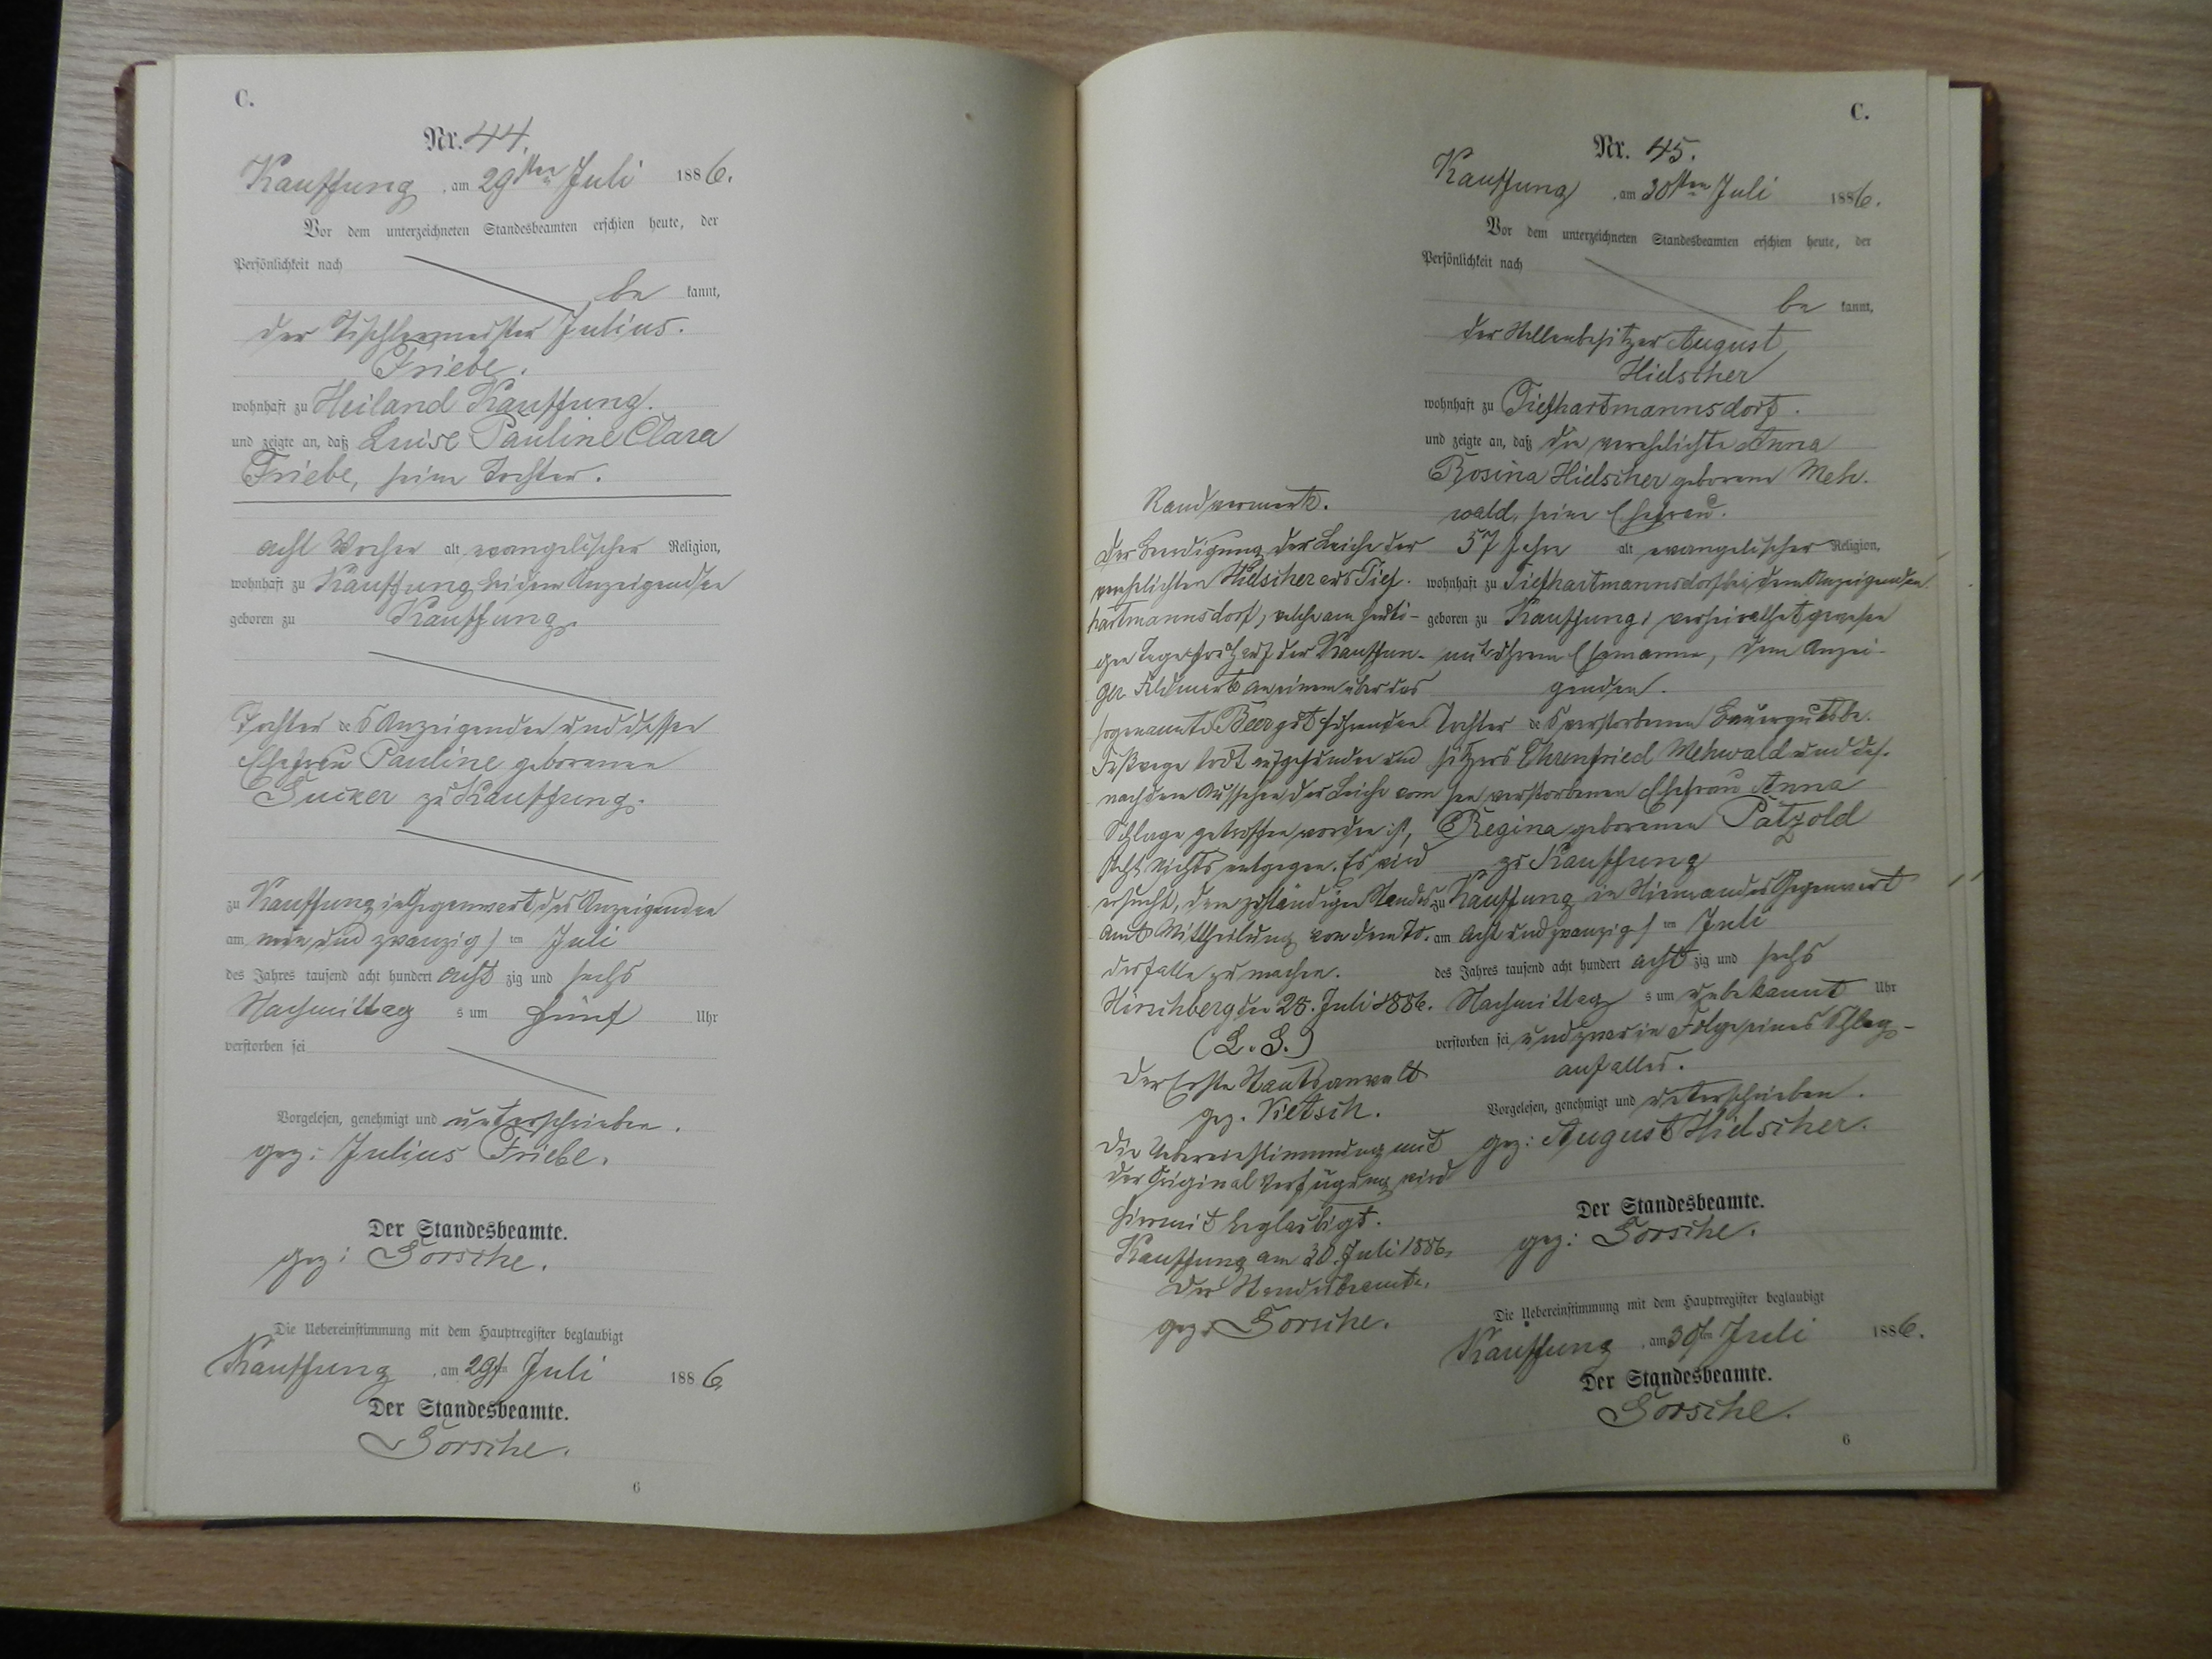 C.
Nr. 44.
Kauffung, am 29sten Juli 1886.
Vor dem unterzeichneten Standesbeamten erschien heute, der
Persönlichkeit nach
be kannt,
der Tischlermeister Julius
Friebe.
wohnhaft zu Heiland Kauffung.
und zeigte an, daß Luise Pauline Clara
Friebe, seine Tochter.
acht Wochen alt, evangelischer Religion,
wohnhaft zu Kauffung bei dem Anzeigenden
geboren zu Kauffung,
Tochter des Anzeigenden und dessen
Ehefrau Pauline geborenen
Sucker zu Kauffung.
zu Kauffung in Gegenwart des Anzeigenden
am neun und zwanzigsten Juli
des Jahres tausend acht hundert acht zig und sechs
Nachmittags um fünf Uhr
verstorben sei
Vorgelesen, genehmigt und unterschrieben.
gez: Julius Friebe.
Der Standesbeamte.
gez: Gorsche.
Die Uebereinstimmung mit dem Hauptregister beglaubigt
Kauffung, am 29ten Juli 1886
Der Standesbeamte.
Gorsche.
6
C.
Nr. 45.
Kauffung, am 30sten Juli 1886.
Vor dem unterzeichneten Standesbeamten erschien heute, der
Persönlichkeit nach
be kannt,
der Stellenbesitzer August
Hielscher
wohnhaft zu Tiefhartmannsdorf.
und zeigte an, daß die verehelichte Anna
Rosina Hielscher geborene Meh-
wald, seine Ehefrau.
57 Jahr alt evangelischer Religion,
wohnhaft zu Tiefhartmannsdorf bei dem Anzeigenden
geboren zu Kauffung, verheirathet gewesen
mit ihrem Ehemanne, dem Anzei-
genden.
Tochter des verstorbenen Bauergutsbe-
sitzers Ehrenfried Mehwald und des-
sen verstorbenen Ehefrau Anna
Regina geborenen Pätzold
zu Kauffung
zu Kauffung in Niemandes Gegenwart
am acht und zwanzigsten Juli
des Jahres tausend acht hundert acht zig und sechs
Nachmittags um unbekannt Uhr
verstorben sei und zwar in Folge eines Schlag-
anfalles.
Vorgelesen, genehmigt und unterschrieben.
gez: August Hielscher.
Der Standesbeamte.
gez: Gorsche.
Die Uebereinstimmung mit dem Hauptregister beglaubigt
Kauffung, am 30ten Juli 1886.
Der Standesbeamte.
Gorsche.
6
Randvermerk.
Der Beerdigung der Leiche der
verehelichten Hielscher aus Tief-
hartmannsdorf, welche am heuti-
gen Tage früh auf der Kauffun-
ger Feldmark an einem über das
sogenannte Beergut führenden
Fußwege todt aufgefunden und
nach dem Aussehen der Leiche vom
Schlage getroffen worden ist,
steht Nichts entgegen. Es wird
ersucht, dem zuständigen Standes-
amt Mittheilung von dem To-
desfalle zu machen.
Hirschberg den Juli 1886.
(L. S.)
Der Erste Staatsanwalt
gez. Vietsch.
Die Uebereinstimmung mit
der Original Verfügung wird
hiermit beglaubigt.
Kauffung am 30. Juli 1886.
Der Standesbeamte.
gez: Gorsche.